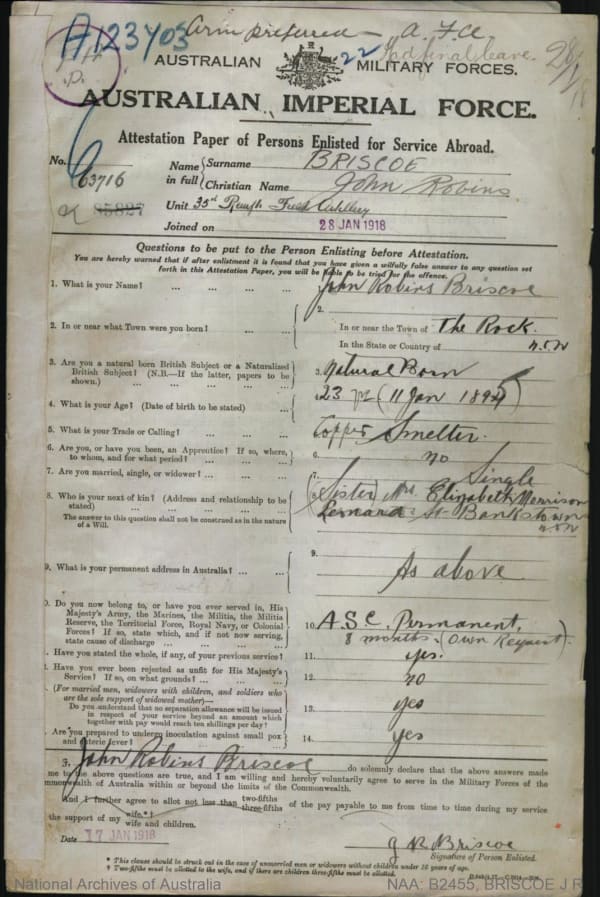 A123403 Arm preferred - A.F.A.
22 final leave.
AUSTRALIAN MILITARY FORCES.
AUSTRALIAN IMPERIAL FORCE.
Attestation Paper of Persons Enlisted for Service Abroad.
No. 63716
Name in full { Surname BRISCOE
Christian Name John Robins
Unit 35st Field Artillery
Joined on 28 JAN 1918
Questions to be put to the Person Enlisting before Attestation.
You are hereby warned that if after enlistment it is found that you have given a wilfully false answer to any question set
forth in this Attestation Paper, you will be liable to be tried for the offence.
1. What is your Name? ... ... ... ... John Robins Briscoe
2. In or near what Town were you born? ... ... 2. In or near the Town of The Rock.
In the State or Country of N.S.W
3. Are you a natural born British Subject or a Naturalized
British Subject? (N.B.—If the latter, papers to be
shown.) ... ... ... ... 3. Natural Born
4. What is your Age? (Date of birth to be stated) ... 23 (11 Jan 1895)
5. What is your Trade or Calling? ... ... ... Copper Smelter.
6. Are you, or have you been, an Apprentice? If so, where,
to whom, and for what period? ... ... 6. no
7. Are you married, single, or widower? ... ... 7. Single
8. Who is your next of kin? (Address and relationship to be
stated) ... ... ... ... (Sister) Mrs Elizabeth Morrison
Leonard St Bankstown
N.S.W
The answer to this question shall not be construed as in the nature
of a Will.
9. What is your permanent address in Australia? ... ... 9. As above
0. Do you now belong to, or have you ever served in, His
Majesty's Army, the Marines, the Militia, the Militia
Reserve, the Territorial Force, Royal Navy, or Colonial
Forces? If so, state which, and if not now serving,
state cause of discharge ... ... ... 10. A.S.C. Permanent,
8 months. (Own Request)
. Have you stated the whole, if any, of your previous service? 11. yes.
. Have you ever been rejected as unfit for His Majesty's
Service? If so, on what grounds? ... ... ... 12. no
. (For married men, widowers with children, and soldiers who
are the sole support of widowed mother)—
Do you understand that no separation allowance will be issued
in respect of your service beyond an amount which
together with pay would reach ten shillings per day? 13. yes
. Are you prepared to undergo inoculation against small pox
and enteric fever? ... ... ... ... 14. yes
I, John Robins Briscoe do solemnly declare that the above answers made
me to the above questions are true, and I am willing and hereby voluntarily agree to serve in the Military Forces of the
mmonwealth of Australia within or beyond the limits of the Commonwealth.
And I further agree to allot not less than two-fifths three-fifths of the pay payable to me from time to time during my service
the support of my wife.*†
wife and children.
Date 17 JAN 1918
J R Briscoe
Signature of Person Enlisted.
* This clause should be struck out in the case of unmarried men or widowers without children under 16 years of age.
† Two-fifths must be allotted to the wife, and if there are children three-fifths must be allotted.
National Archives of Australia NAA: B2455, BRISCOE J R